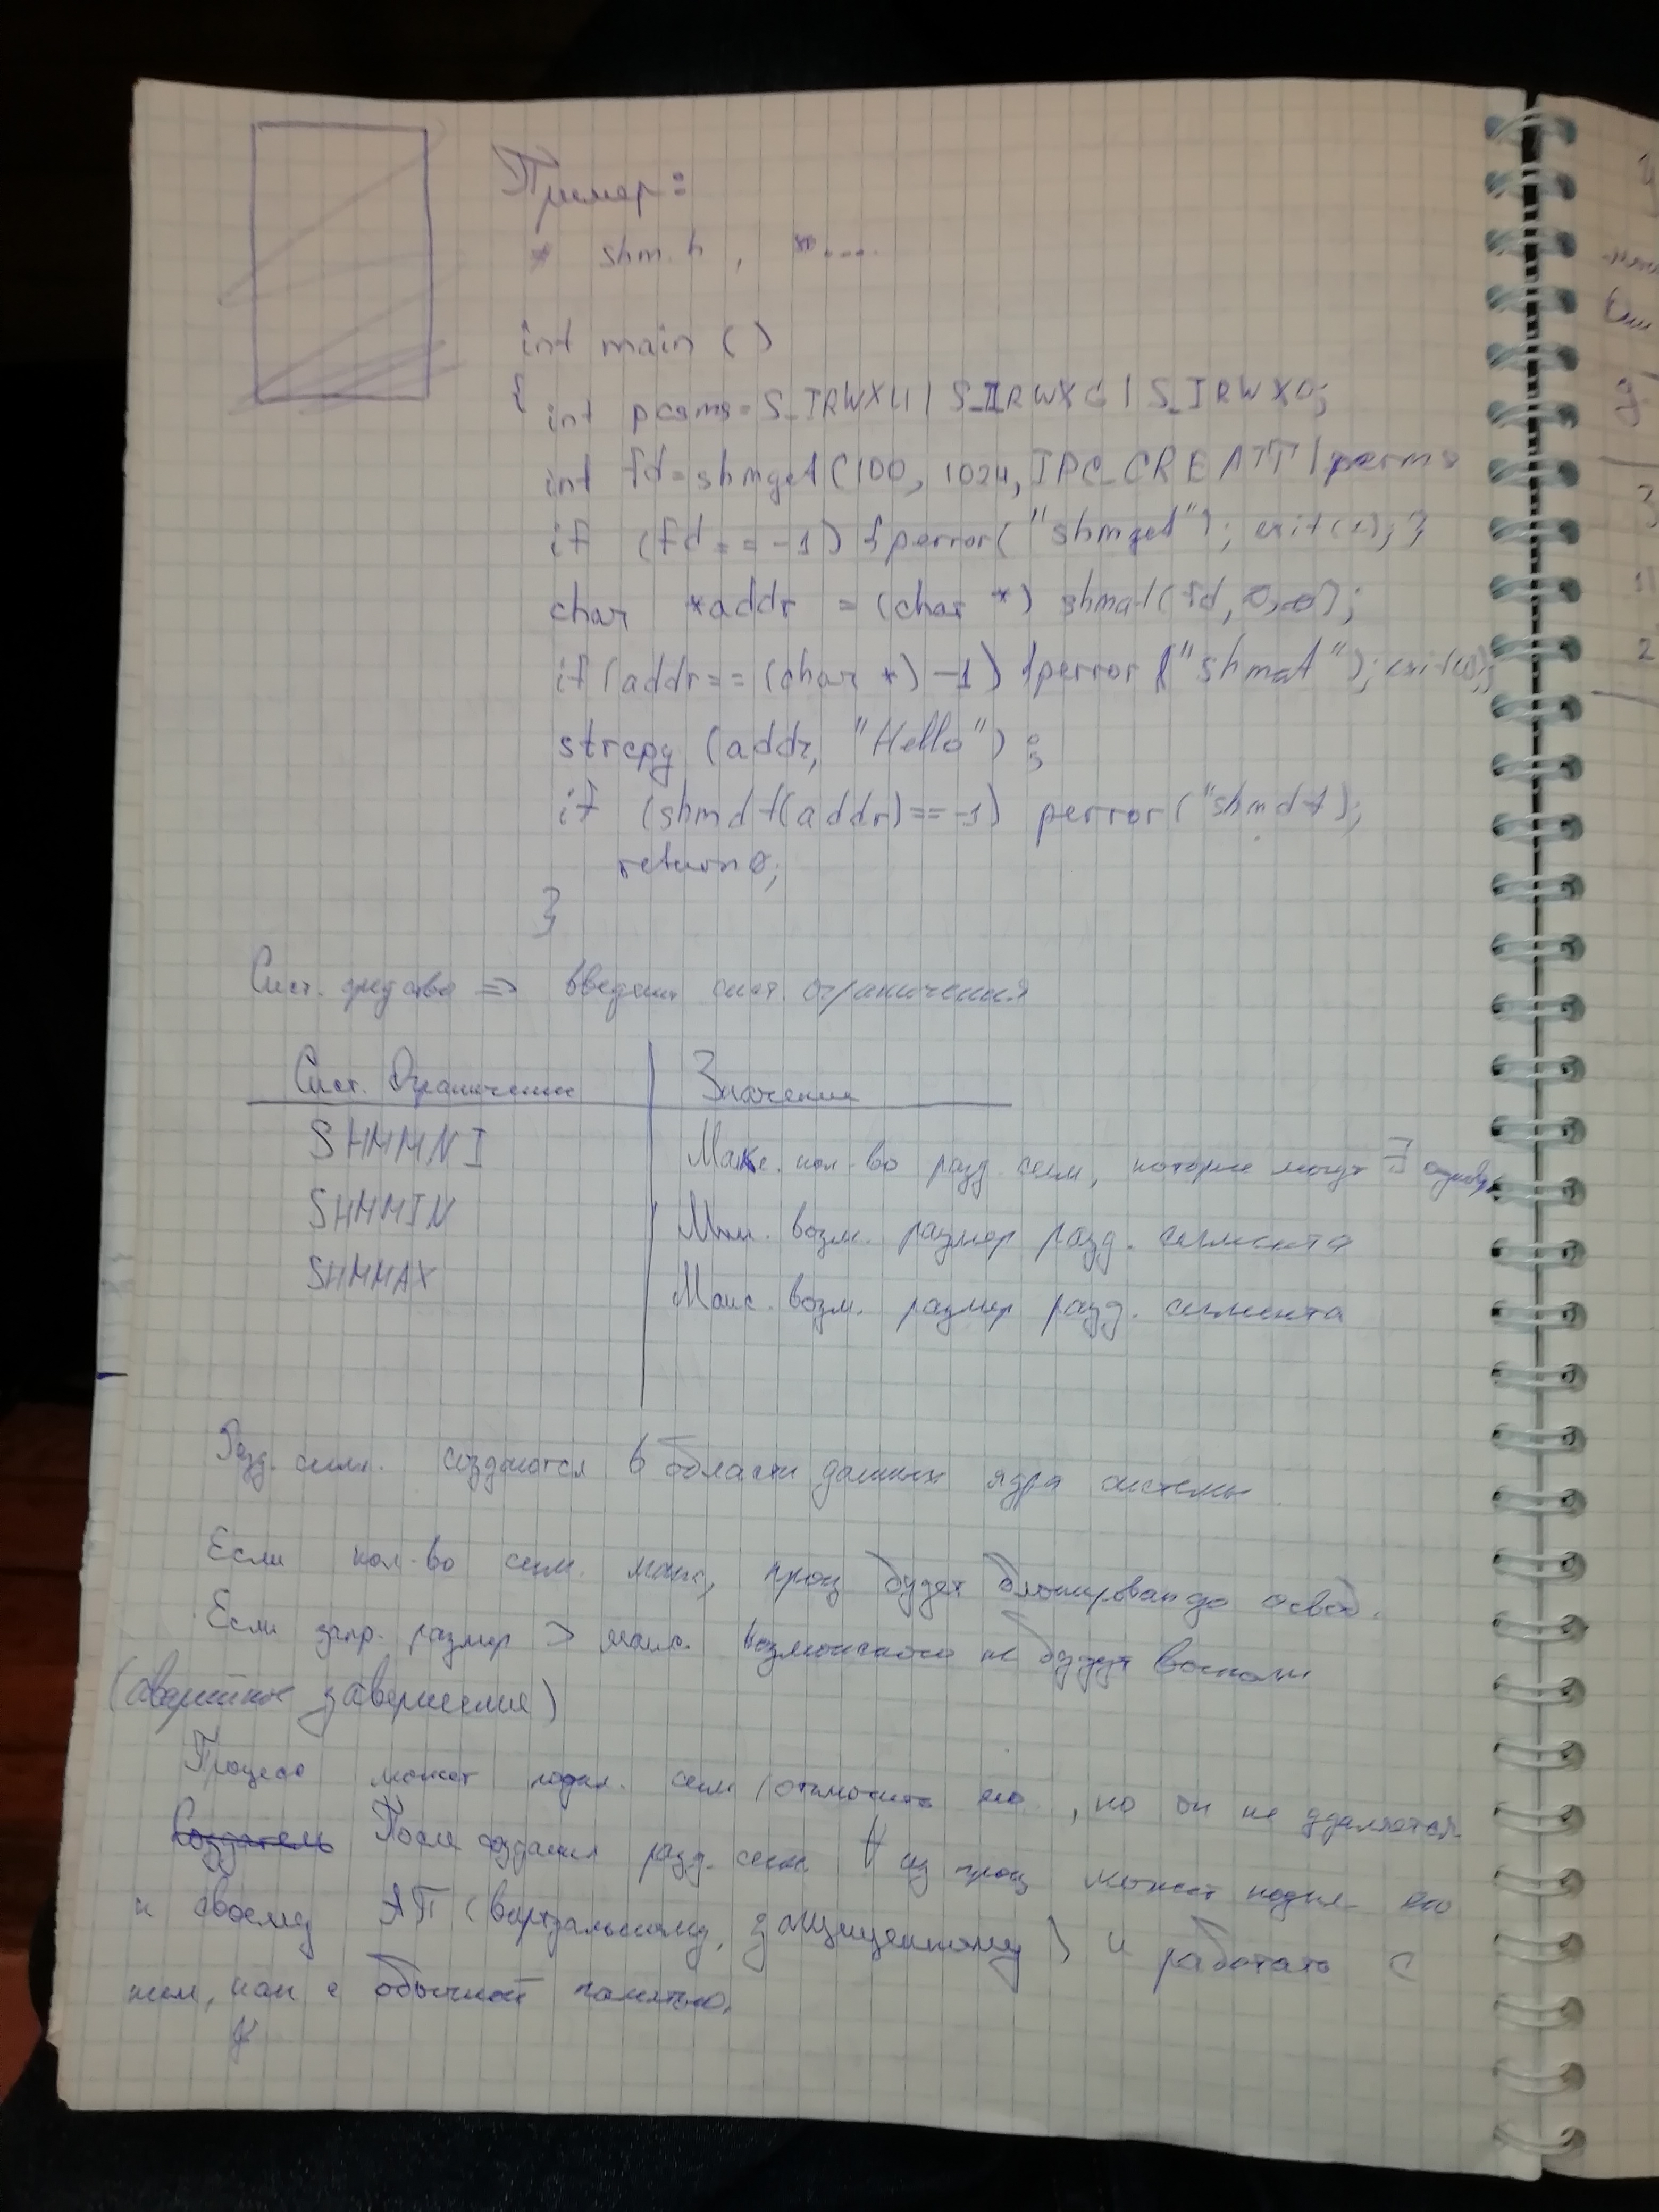 Пример:
* shm.h, *....
int main ()
{
int perms = S_IRWXU | S_IRWXG | S_IRWXO;
int fd = shmget (100, 1024, IPC_CREATT | perms
if (fd == -1) {perror("shmget"); exit(1); }
char *addr = (char *) shmat(fd, 0, 0);
if (addr == (char *) -1) {perror ("shmat"); exit(1);
strcpy (addr, "Hello") ;
if (shmdt(addr) == -1) perror("shmdt);
return 0;
}
Сист. средства => введены сист. ограничения
Сист. Ограничение | Значение
SHMMNI | Макс. кол-во разд. сегм, которые могут ∃
SHMMIN | Мин. возм. размер разд. сегмента
SHMMAX | Макс. возм. размер разд. сегмента
Разд. сегм. создаются в области данных ядра системы
Если кол-во сегм. макс, проц будет блокирован до освоб.
Если запр. размер > макс. возможного не будет
(аварийное завершение)
Процесс может подкл. сегм /отключить его, но он не удаляется.
Создатель После создания разд. сегм. ∀ из проц может подкл его
к своему АП (виртуальному, защищенному) и работать с
ним, как с обычной памятью.